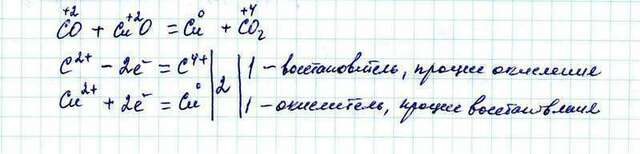 +2 +2 0 +4
CO + CuO = Cu + CO₂
C²⁺ − 2e⁻ = C⁴⁺ | 2 | 1 – восстановитель, процесс окисления
Cu²⁺ + 2e⁻ = Cu⁰ | 1 – окислитель, процесс восстановления